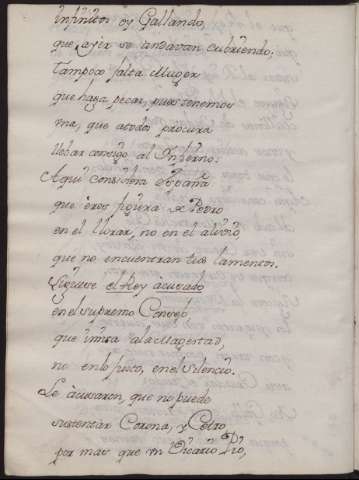 infinitos oy Gallando,
que ayer se andavan cubriendo;
Tampoco falta Muger
que haga pecar, pues tenemos
vna, que atodos procura
llebar consigo al Infierno:
Aqui considera España
que eres figura de Pedro
en el llorar, no en el alivio
que no encuentran tus lamentos.
Siguese el Rey acusado
en el supremo Consejo,
que imita ala Magestad,
no enlo justo, en el silencio.
Le acusaron, que no puede
sustentar Corona, y Cetro
por mas que vn Vicario Pio,